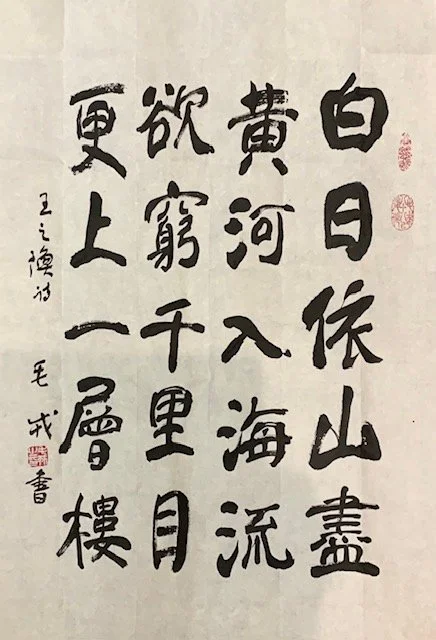 白日依山盡
黃河入海流
欲窮千里目
更上一層樓
王之渙詩 毛戎書